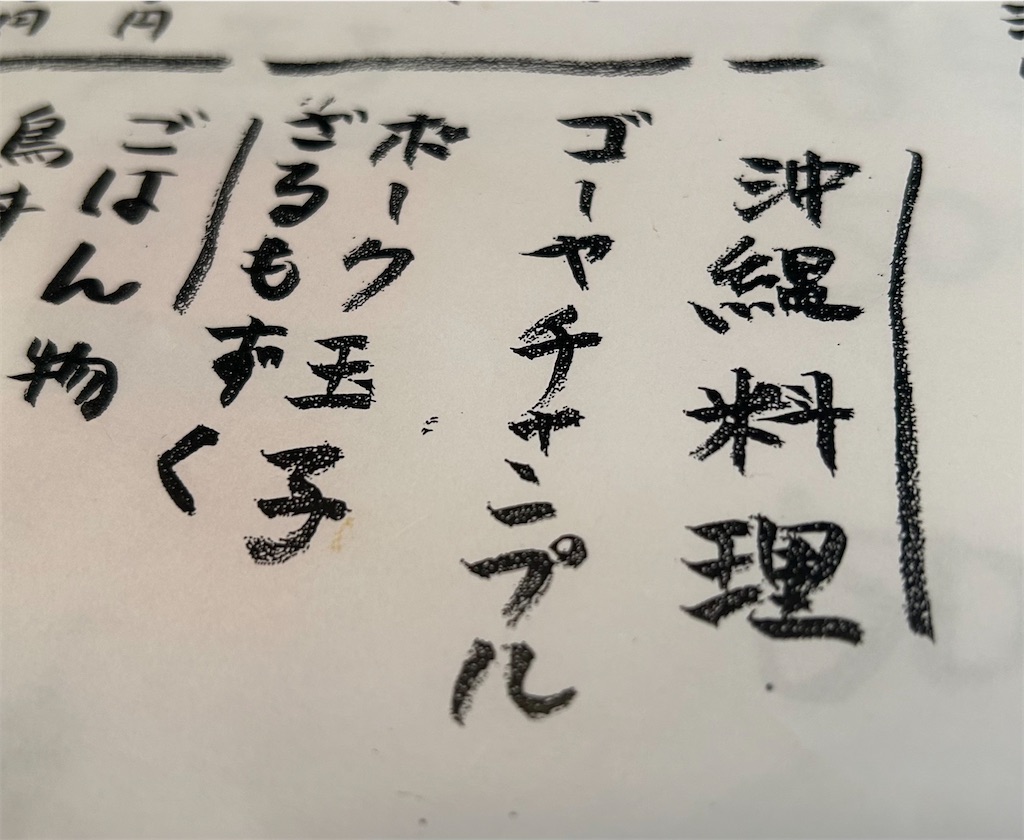 沖縄料理
ゴーヤチャンプル
ポーク玉子
ざるもずく
ごはん物
円
円